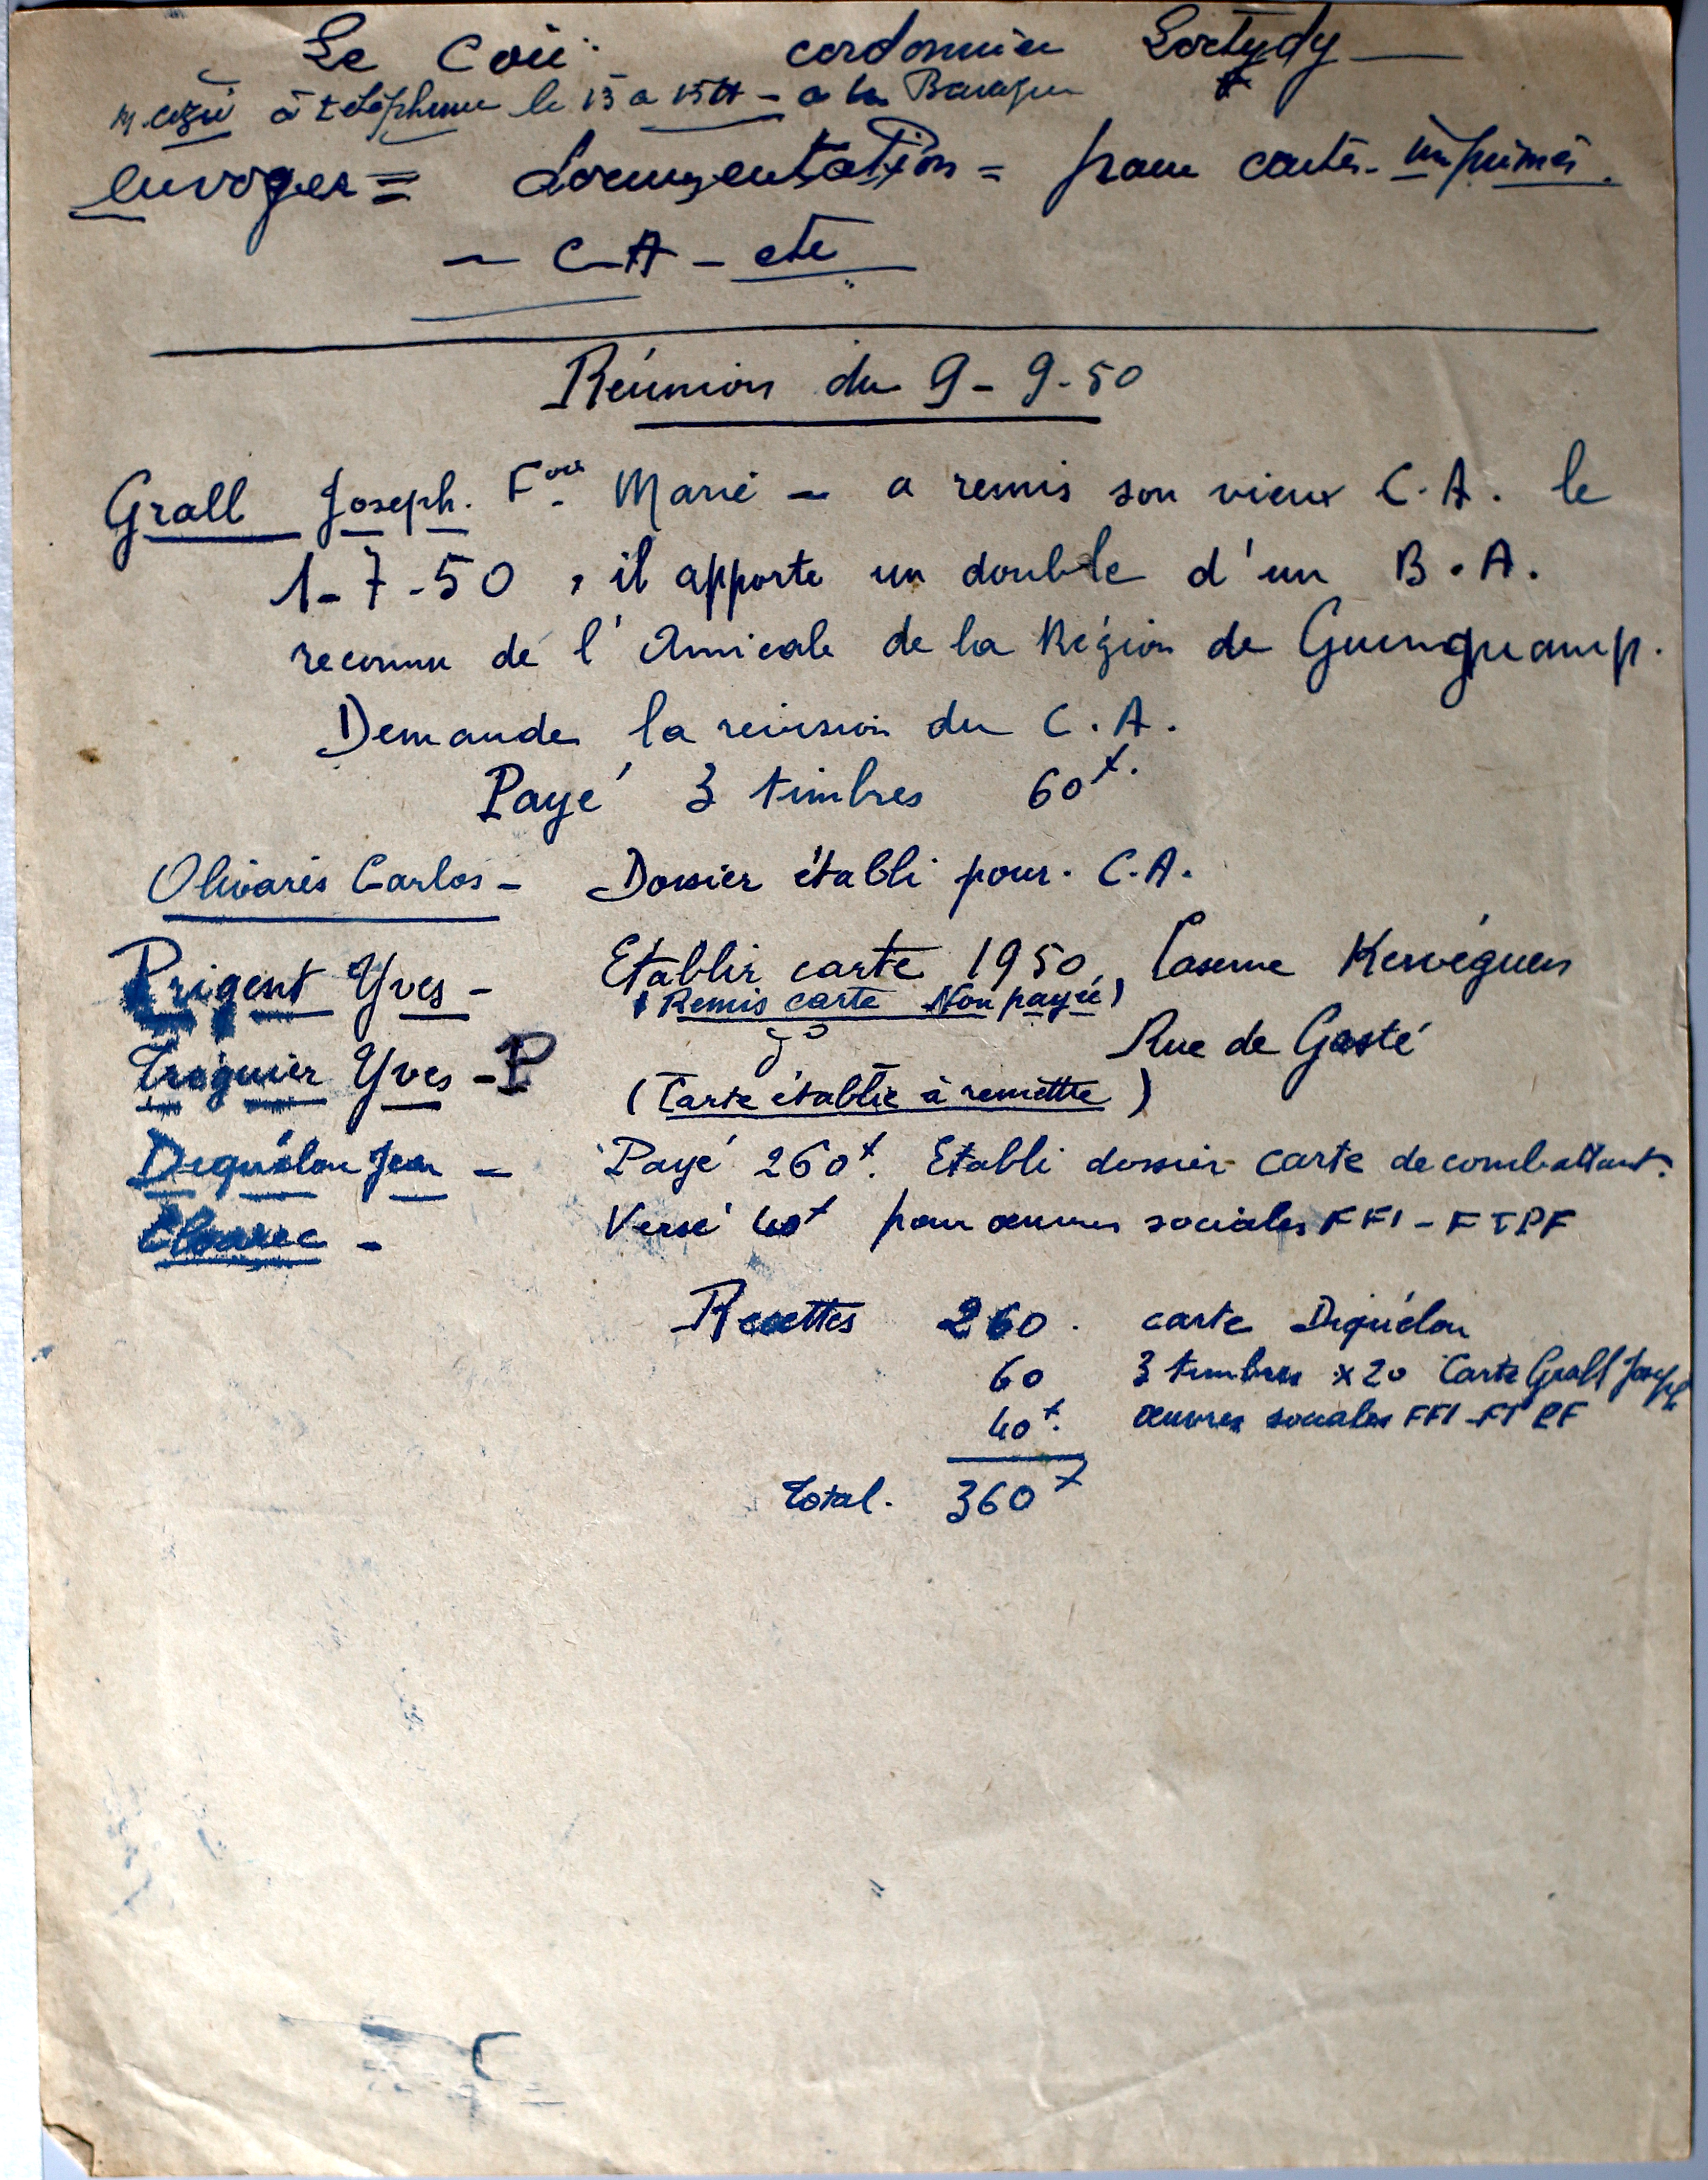 Le Coü cordonnier Loctudy
à téléphoner le 13 a 15H - a la
envoyer = documentation = pour cartes - imprimés.
- C-A - etc
Réunion du 9-9-50
Grall Joseph. Fois Marie - a remis son vieux C.A. le
1-7-50, il apporte un double d'un B.A.
reconnu de l'Amicale de la Région de Guingamp.
Demande la revision du C.A.
Payé 3 timbres 60f.
Olivarès Carlos - Dossier établi pour. C.A.
Prigent Yves - Etablir carte 1950, Caserne Kervéguen
(Remis carte Non payée)
Troguier Yves - P do Rue de Gasté
(Carte établie à remettre)
Diquélou Jean - Payé 260f. Etabli dossier carte de combattant.
Versé 40f pour œuvres sociales FFI-FTPF
Recettes 260. carte Diquélou
60 3 timbres x 20 Carte Grall Joseph
40f. œuvres sociales FFI-FTPF
Total. 360f